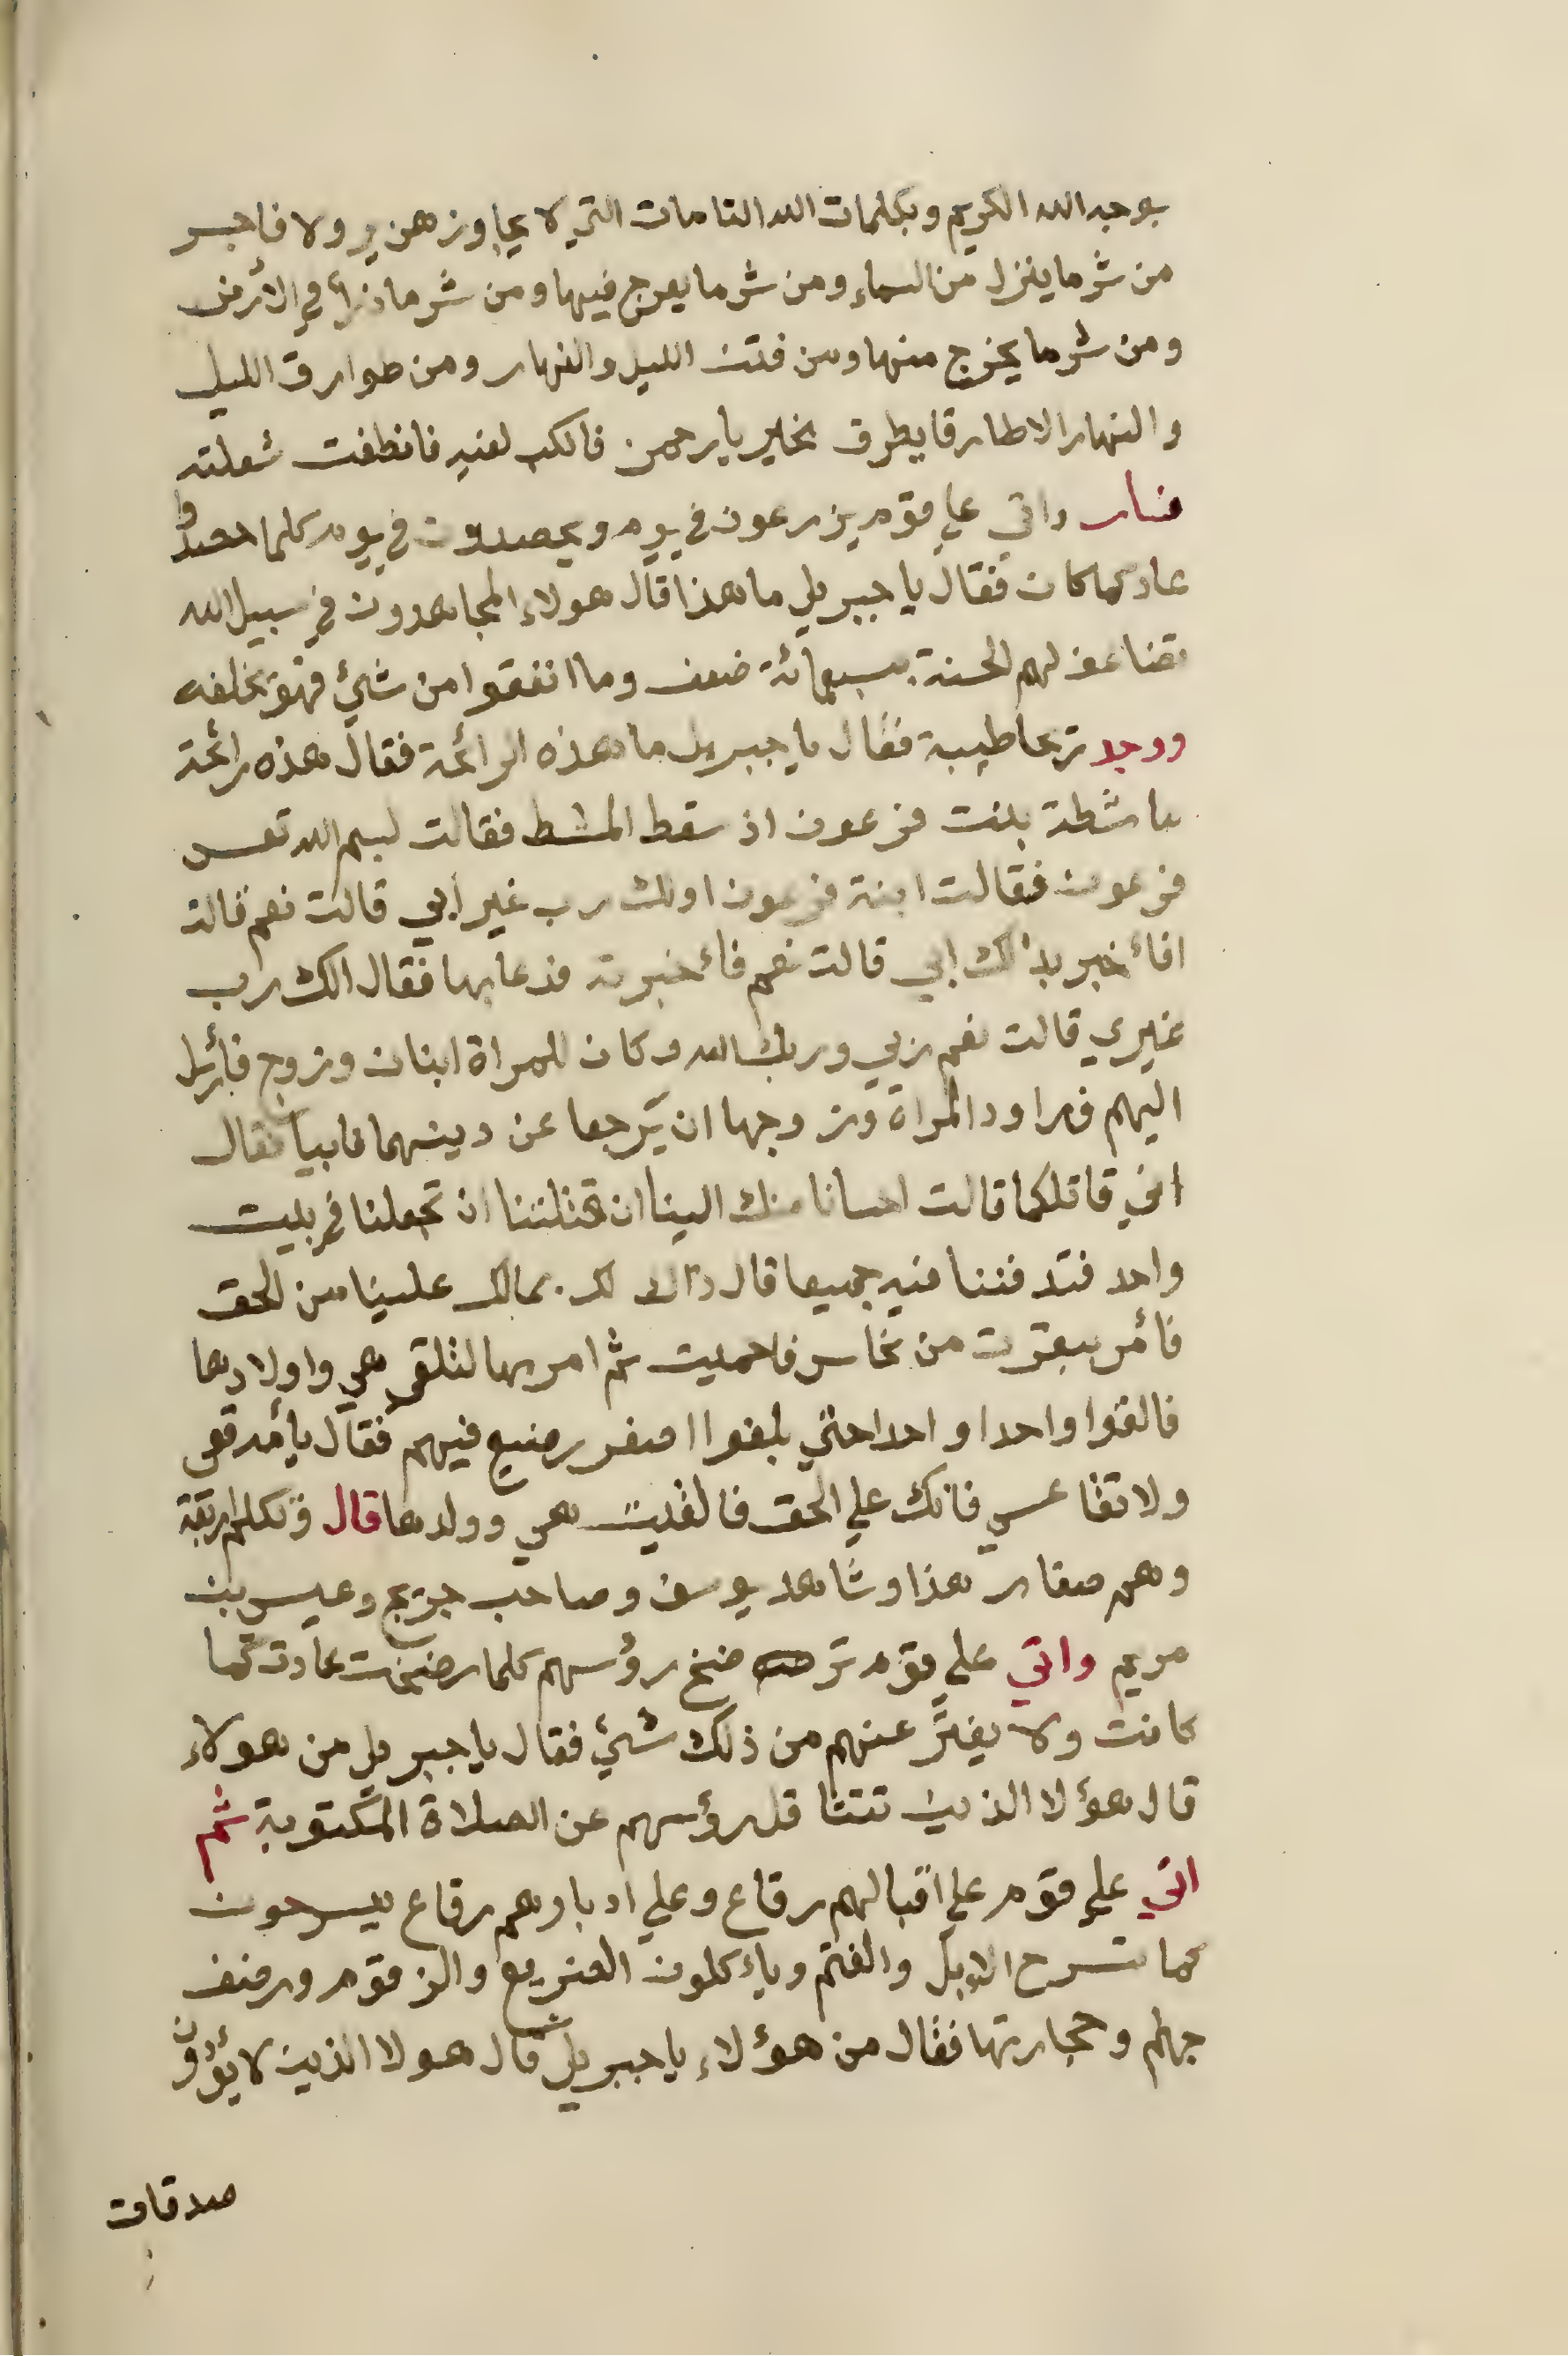 بوجه الله الكريم وبكلمات الله التامات التي لا يجاوزهن بر ولا فاجر
من شر ما ينزل من السماء ومن شر ما يعرج فيها ومن شر ما ذرأ في الأرض
ومن شر ما يخرج منها ومن فتن الليل والنهار ومن طوارق الليل
والنهار الا طارقا يطرق بخير يا رحمن فانكب لفيه فانطفت شعلته
فسار واتي علي قوم يزرعون في يوم ويحصدون في يوم كلما حصدوا
عاد كما كان فقال يا جبريل ما هذا قال هولاء المجاهدون في سبيل الله
تضاعف لهم الحسنة بسبعمائة ضعف وما انفقوا من شيئ فهو يخلفه
ووجد ريحا طيبة فقال يا جبريل ما هذه الرائحة فقال هذه رائحة
ماشطة بنت فرعون اذ سقط المشط فقالت بسم الله تعس
فرعون فقالت ابنة فرعون اولك رب غير أبي قالت نعم قالت
افأخبر بذالك ابي قالت نعم فأخبرته فدعا بها فقال الك رب
غيري قالت نعم ربي وربك الله وكان للمراة ابنان وزوج فأرسل
اليهم فراود المراة وزوجها ان يرجعا عن دينهما فابيا فقال
اني قاتلكما قالت احسانا منك الينا ان قتلتنا ان تجعلنا في بيت
واحد فتدفننا فيه جميعا قال ذالك لك بمالك علينا من الحق
فأمر ببقرت من نحاس فاحميت ثم امر بها لتلقي هي واولادها
فالقوا واحدا واحدا حتي بلغوا اصغر رضيع فيهم فقال يا أمه قعي
ولا تقاعسي فانك علي الحق فالقيت هي وولدها قال وتكلم اربعة
وهم صغار هذا وشاهد يوسف وصاحب جريج وعيسي بن
مريم واتي علي قوم ترضخ رؤسهم كلما رضخت عادت كما
كانت ولا يفتر عنهم من ذلك شيئ فقال يا جبريل من هولاء
قال هؤلا الذين تتثاقل رؤسهم عن الصلاة المكتوبة ثم
اتي علي قوم علي اقبالهم رقاع وعلي ادبارهم رقاع يسرحون
كما تسرح الابل والغنم ويأكلون الضريع والزقوم ورضف
جهنم وحجارتها فقال من هؤلاء يا جبريل قال هولا الذين لا يؤدون
صدقات